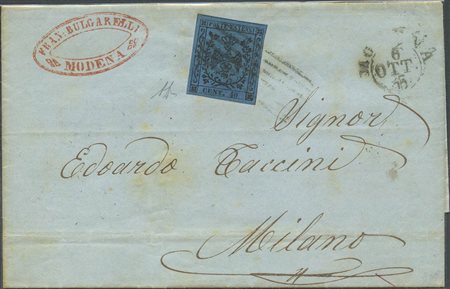 FRAN. BULGARELLI
MODENA
POSTE ESTENSI
CENT. 40
MODENA
6
OTT
Signor
Edoardo Taccini
Milano